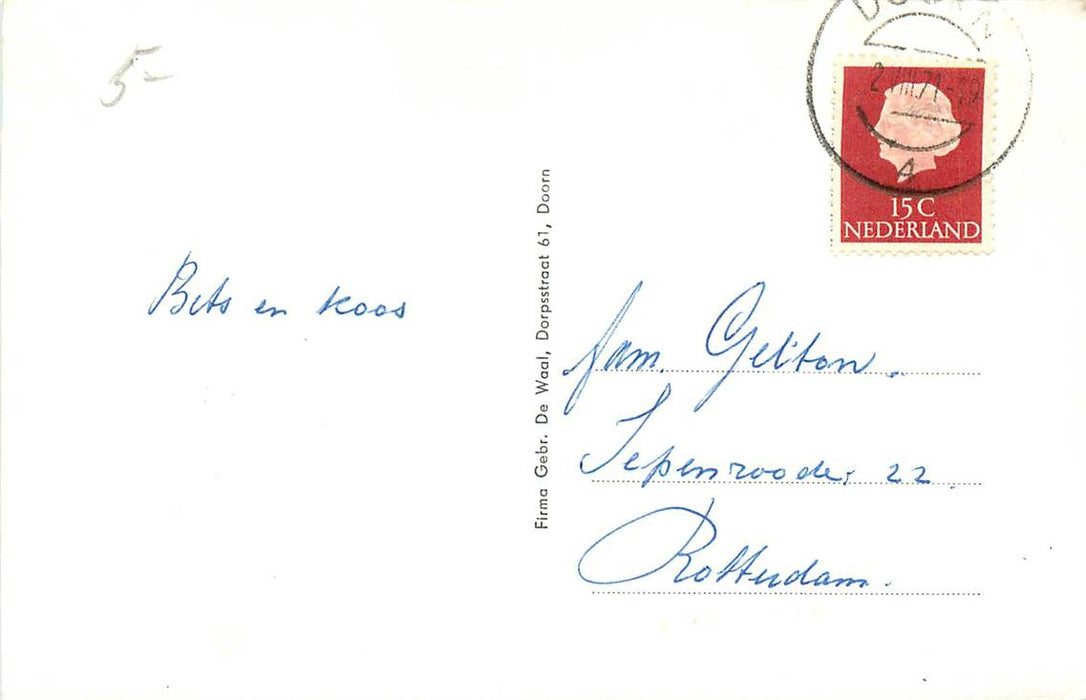 5-
DOORN
2 VIII.71-19
A
15 C
NEDERLAND
Bets en Koos
Firma Gebr. De Waal, Dorpsstraat 61, Doorn
fam. Gelton.
22.
Rotterdam.